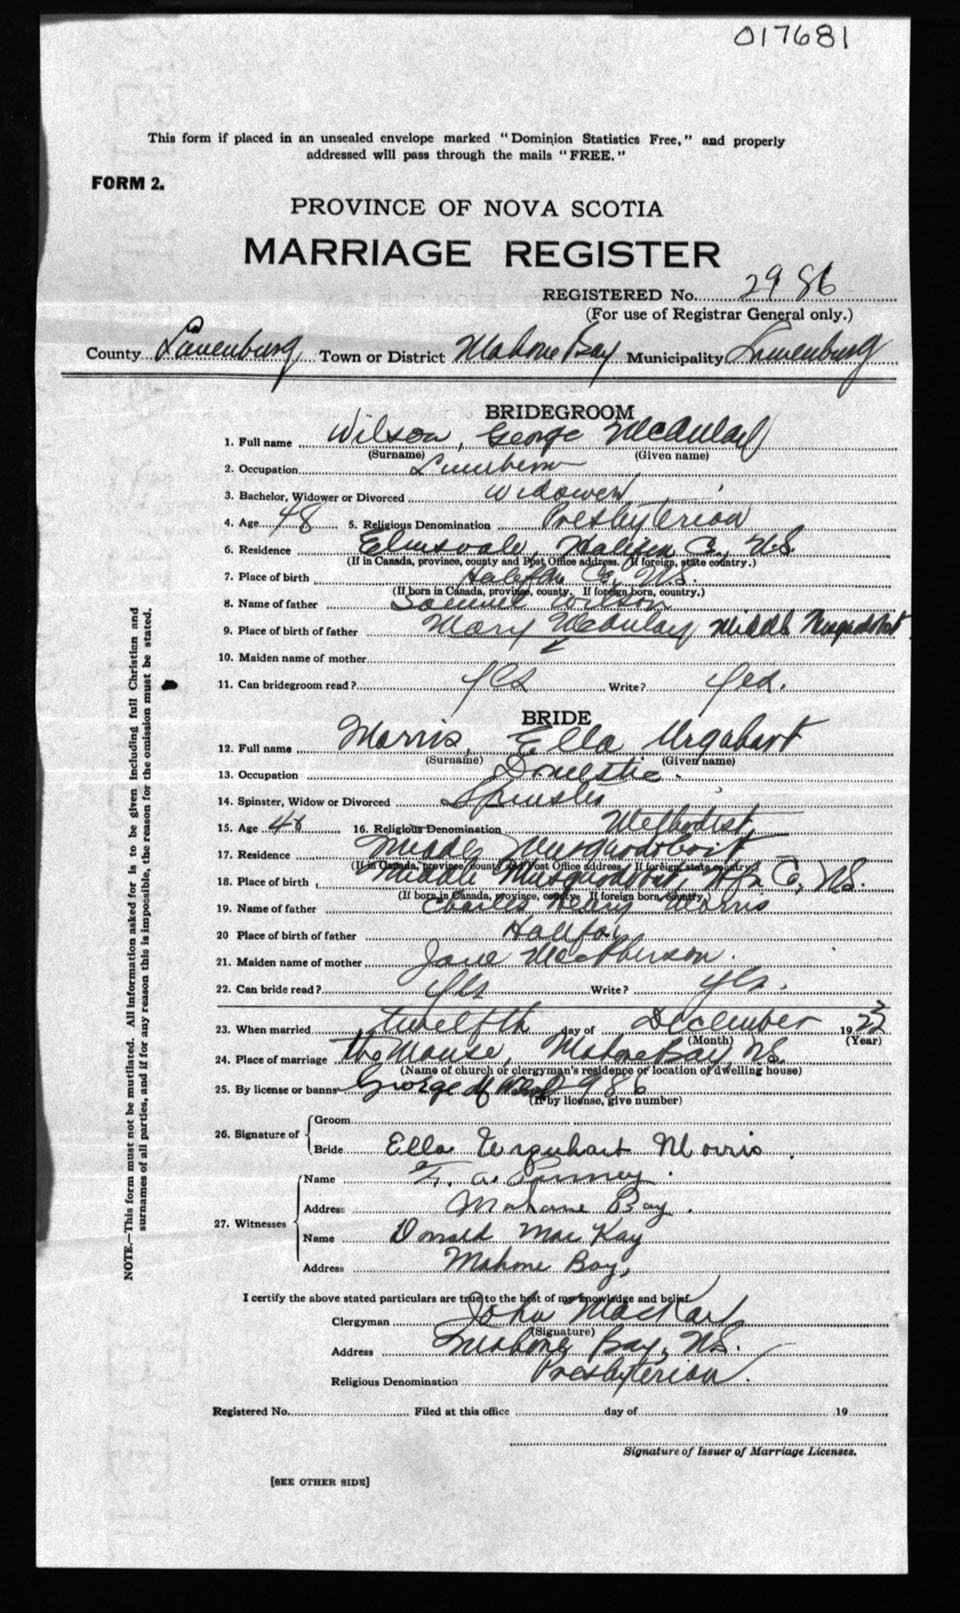 017681
This form if placed in an unsealed envelope marked "Dominion Statistics Free," and properly
addressed will pass through the mails "FREE."
FORM 2.
PROVINCE OF NOVA SCOTIA
MARRIAGE REGISTER
REGISTERED No. 2986
(For use of Registrar General only.)
County Lunenburg Town or District Mahone Bay Municipality Lunenburg
BRIDEGROOM
1. Full name Wilson, George McAulay
(Surname) (Given name)
2. Occupation
3. Bachelor, Widower or Divorced Widower
4. Age 48 5. Religious Denomination Presbyterian
6. Residence Elmsvale, Halifax Co., N.S.
(If in Canada, province, county and Post Office address. If foreign, state country.)
7. Place of birth Halifax Co., N.S.
(If born in Canada, province, county. If foreign born, country.)
8. Name of father Samuel Wilson
9. Place of birth of father Mary McAulay Middle Musquodoboit
10. Maiden name of mother
11. Can bridegroom read? yes Write? yes.
BRIDE
12. Full name Morris, Ella Urquhart
(Surname) (Given name)
13. Occupation Domestic.
14. Spinster, Widow or Divorced Spinster
15. Age 16. Religious Denomination Methodist,
17. Residence Middle Musquodoboit
(If in Canada, province, county and Post Office address. If foreign, state country.)
18. Place of birth Middle Musquodoboit, Hfx Co, N.S.
(If born in Canada, province, county. If foreign born, country.)
19. Name of father Charles Henry Morris
20 Place of birth of father Halifax
21. Maiden name of mother Jane McPherson.
22. Can bride read? yes Write? yes.
23. When married twelfth day of December 19
(Month) (Year)
24. Place of marriage the Manse, Mahone Bay, N.S.
(Name of church or clergyman's residence or location of dwelling house)
25. By license or banns George M 986
(If by license, give number)
26. Signature of
Groom
Bride Ella Urquhart Morris.
27. Witnesses
Name
Address Mahone Bay.
Name Donald MacKay
Address Mahone Bay,
I certify the above stated particulars are true to the best of my knowledge and belief.
Clergyman John MacKay
(Signature)
Address Mahone Bay, N.S.
Religious Denomination Presbyterian.
Registered No. Filed at this office day of 19
Signature of Issuer of Marriage Licenses.
[SEE OTHER SIDE]
NOTE.—This form must not be mutilated. All information asked for is to be given including full Christian and
surnames of all parties, and if for any reason this is impossible, the reason for the omission must be stated.